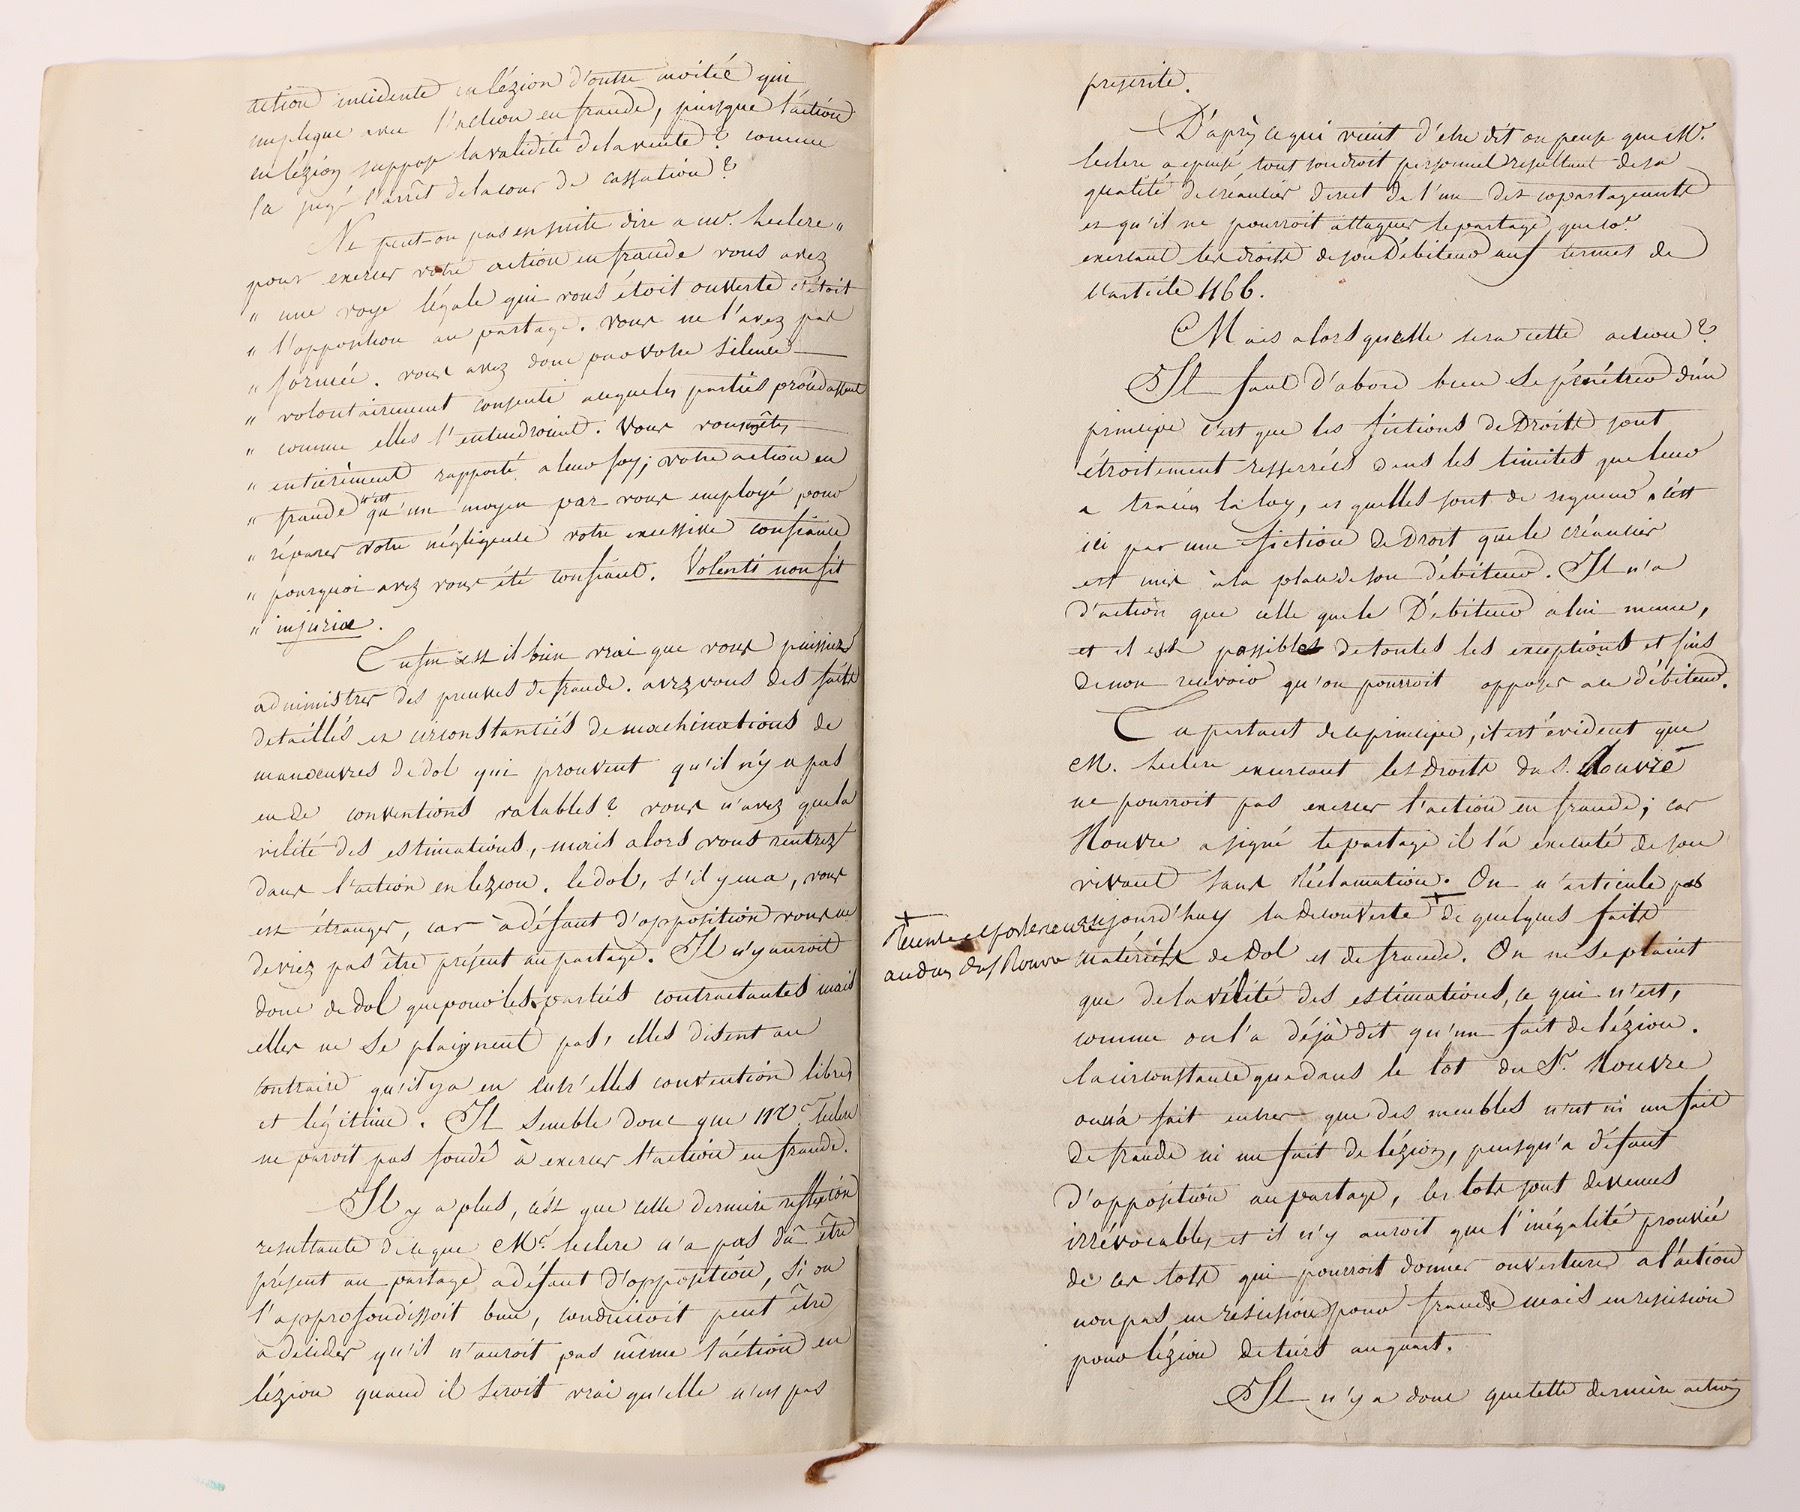 action incidente en lézion d'outre moitié qui
implique avec l'action en fraude, puisque l'action
en lézion suppose la validité de la vente? comme
l'a jugé l'arrêt de la cour de cassation?
Ne peut-on pas ensuite dire a Mr. Leclere „
pour exercer votre action en fraude vous avez
„ une voye légale qui vous étoit ouverte c'étoit
„ l'opposition au partage. vous ne l'avez pas
„ formée. vous avez donc par votre silence
„ volontairement consenti a que les parties procédassent
„ comme elles l'entendroient. Vous vous êtes
„ entièrement rapporté a leur foy; votre action en
„ fraude n'est qu'un moyen par vous employé pour
„ réparer votre négligence votre excessive confiance
„ pourquoi avez vous été confiant. Volenti non fit
„ injuria.
Enfin est il bien vrai que vous puissiez
administrer des preuves de fraude. avez vous des faits
detaillés et circonstanciés de machinations de
manœuvres de dol qui prouvent qu'il n'y a pas
eu de conventions valables? vous n'avez que la
vilité des estimations, mais alors vous rentrez
dans l'action en lezion. le dol, s'il y en a, vous
est étranger, car à défaut d'opposition vous ne
deviez pas être présent au partage. Il n'y auroit
donc de dol que pour les parties contractantes mais
elles ne se plaignent pas, elles disent au
contraire qu'il y a eu entr'elles convention libre
et légitime. Il semble donc que Mr. Leclere
ne paroit pas fondé à exercer l'action en fraude.
Il y a plus, c'est que cette derniere reflexion
resultante de ce que Mr. Leclere n'a pas dû être
présent au partage a défaut d'opposition, si on
l'approfondissoit bien, conduiroit peut être
a décider qu'il n'auroit pas même l'action en
lézion quand il seroit vrai qu'elle n'est pas
prescrite.
D'après ce qui vient d'etre dit on pense que Mr.
Leclere a epuisé tout son droit personnel resultant de sa
qualité de créancier direct de l'un des copartageants
et qu'il ne pourroit attaquer le partage, que
exercant les droits de son Débiteur aux termes de
l'article 1166.
Mais alors quelle sera cette action?
Il faut d'abord bien se pénétrer d'un
principe c'est que les fictions de Droits sont
étroitement resserrées dans les limites que leur
a tracées la loy, et qu'elles sont de rigueur. c'est
ici par une fiction de Droit que le créancier
est mis à la place de son Débiteur. Il n'a
d'action que celle que le Débiteur a lui meme,
et il est passible de toutes les exceptions et fins
de non recevoir qu'on pourroit opposer au débiteur.
En partant de ce principe, il est évident que
M. Leclere exercant les droits du S. Rouvre
ne pourroit pas exercer l'action en fraude; car
Rouvre a signé le partage il l'a éxécuté de son
vivant sans réclamation. On n'articule pas
aujourd'huy la decouverte + de quelques faits
+ recente et posterieure
au deces du S Rouvre
matériels de Dol et de fraude. On ne se plaint
que de la vilité des estimations, ce qui n'est,
comme on l'a déjà dit qu'un fait de lézion.
la circonstance que dans le lot du Sr. Rouvre
on n'a fait entrer que des meubles n'est ni un fait
de fraude ni un fait de lézion, puisqu'a défaut
d'opposition au partage, les lots sont devenus
irrévocables et il n'y auroit que l'inégalité prouvée
de ces lots qui pourroit donner ouverture a l'action
non pas en rescision pour fraude mais en rescision
pour lézion de tiers au quart.
Il n'y a donc que cette derniere action